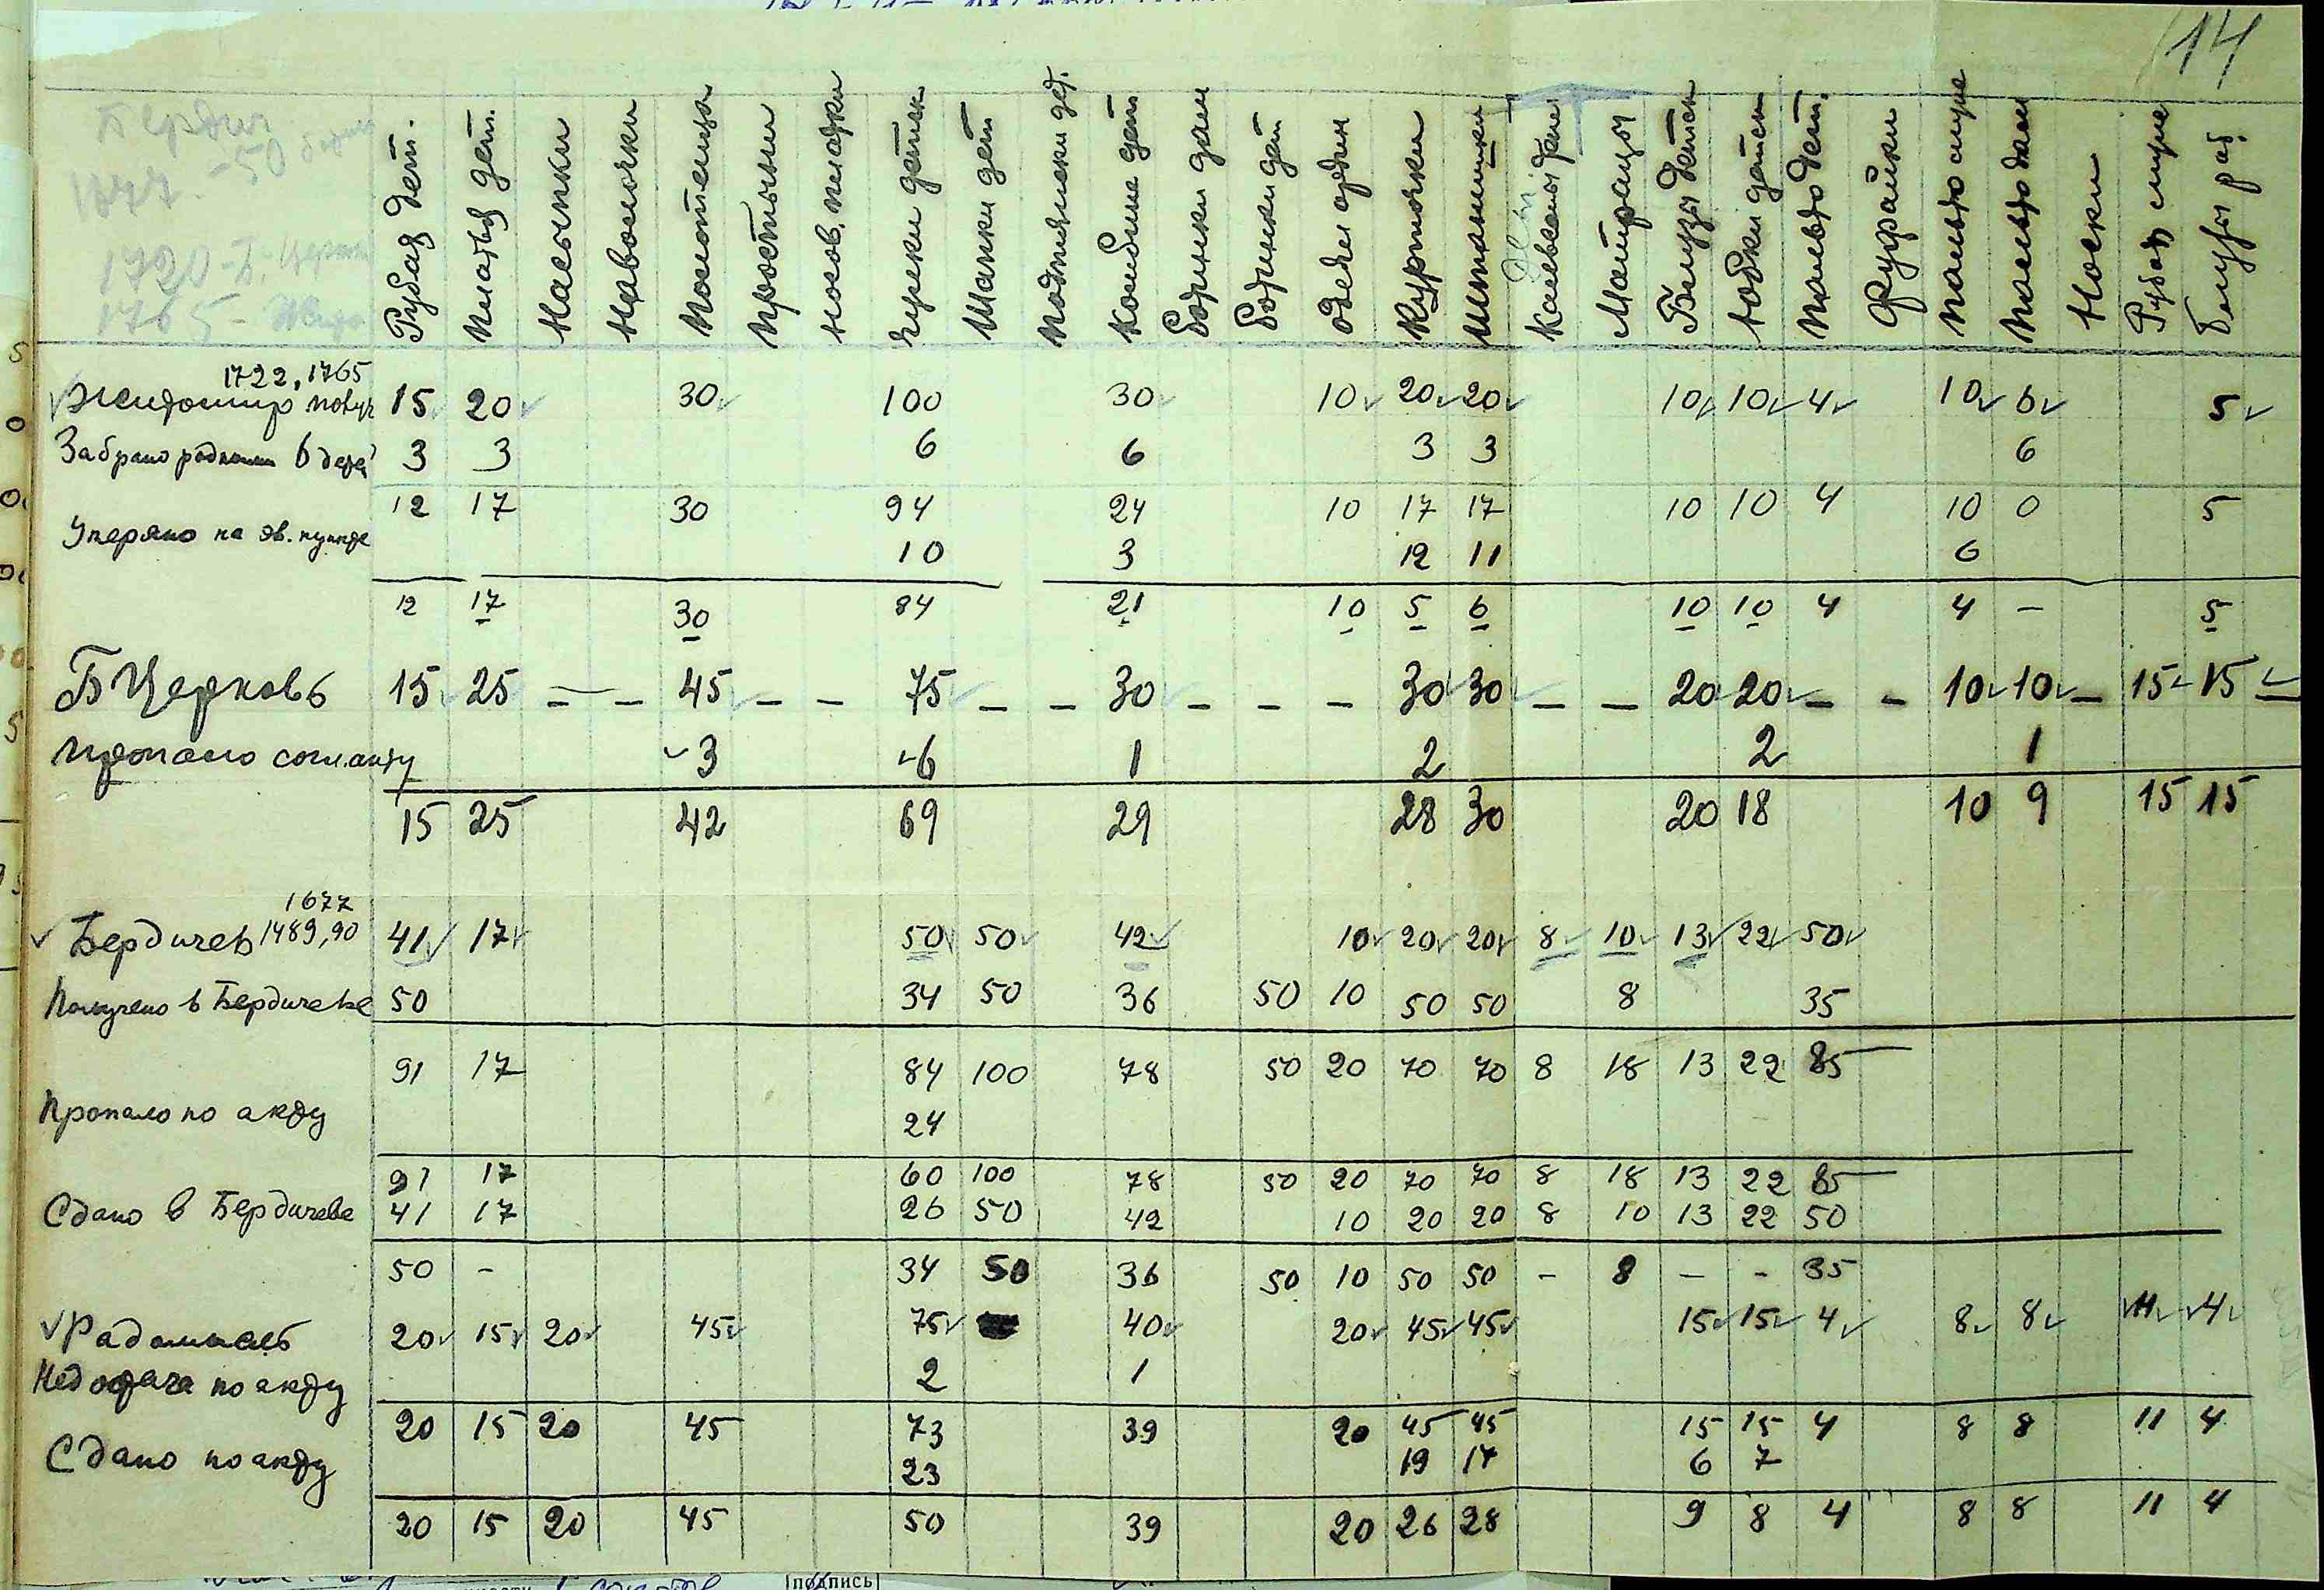 14
Бердич
1877. -50
1720-Б. Церк
1765-
Рубах дет.
Платья дет.
Насыпки
Наволочки
Полотенца
Простыни
Носов. платки
Чулки детск
Шапки дет
дет.
Комбине дет
Ботинки дам
Ботинки дет
Одеял
Курточки
Штанишки
Кальсоны
Матрацы
Блузы детск
Юбки детск
Пальто дет.
Фуфайки
Пальто муж
Пальто дам
Носки
Рубах муж
Блузы раб.
1722, 1765
Житомир 15 20 30 100 30 10 20 20 10 10 4 10 6 5
Забрано 6 детей 3 3 6 6 3 3 6
12 17 30 94 24 10 17 17 10 10 4 10 0 5
Утеряно на эв. пункте
10 3 12 11 6
12 17 30 84 21 10 5 6 10 10 4 4 – 5
БЦерковь 15 25 – – 45 – – 75 – – 30 – – – 30 30 – – 20 20 – – 10 10 – 15 15
Пропало согл. акту 3 -6 1 2 2 1
15 25 42 69 29 28 30 20 18 10 9 15 15
1677
Бердичев 1489,90 41 17 50 50 42 10 20 20 8 10 13 22 50
Получено в Бердичеве 50 34 50 36 50 10 50 50 8 35
91 17 84 100 78 50 20 70 70 8 18 13 22 85
Пропало по акту 24
91 17 60 100 78 50 20 70 70 8 18 13 22 85
Сдано в Бердичеве 41 17 26 50 42 10 20 20 8 10 13 22 50
50 – 34 50 36 50 10 50 50 – 8 – – 35
Радомысль 20 15 20 45 75 40 20 45 45 15 15 4 8 8 11 4
Недостача по акту 2 1
20 15 20 45 73 39 20 45 45 15 15 4 8 8 11 4
Сдано по акту 23 19 17 6 7
20 15 20 45 50 39 20 26 28 9 8 4 8 8 11 4
подпись